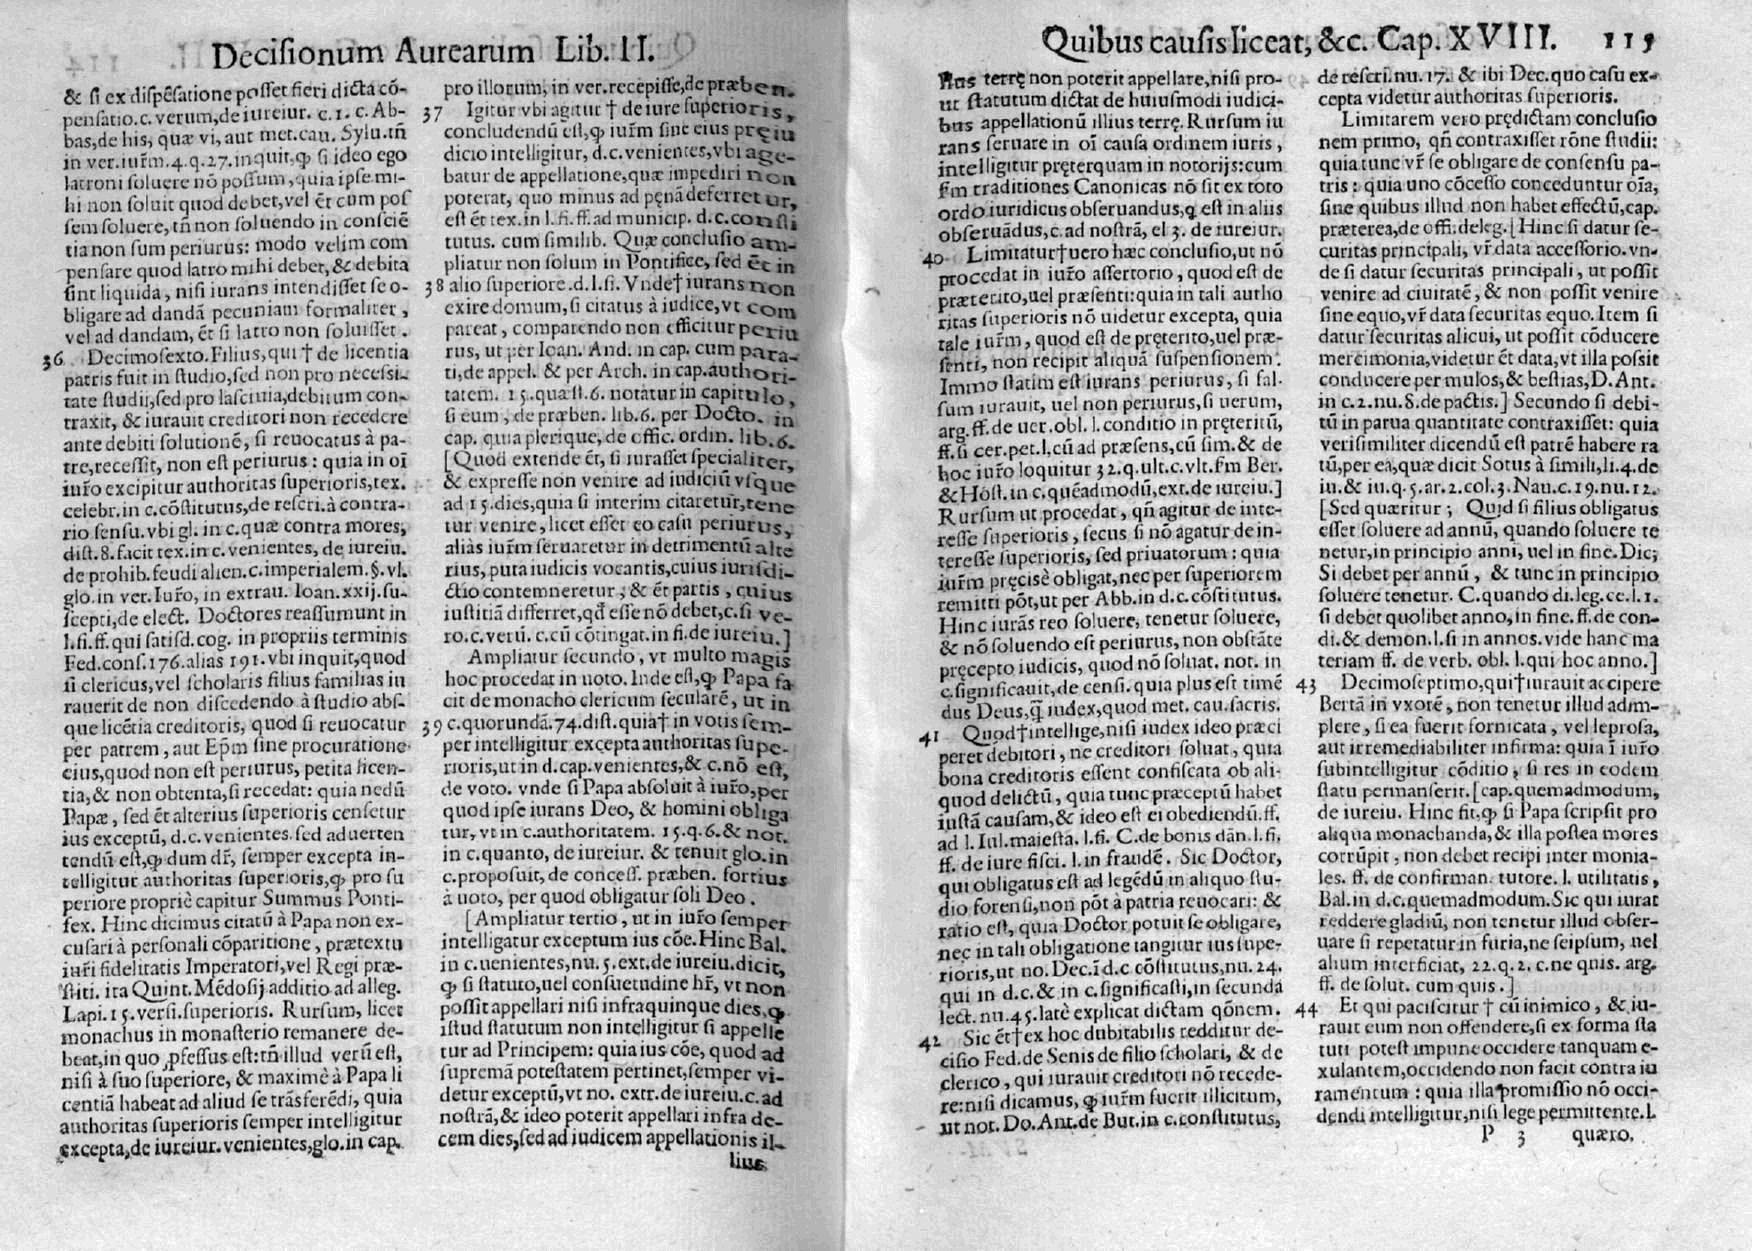 Decisionum Aurearum Lib. II.
& si ex dispẽsatione posset fieri dicta cõ-
pensatio.c. verum,de iureiur. c.1. c. Ab-
bas,de his, quæ vi, aut met.cau. Sylu.tñ
in ver.iur̃m.4.q.27.inquit,ꝙ si ideo ego
latroni soluere nõ possum,quia ipse mi-
hi non soluit quod debet,vel ẽt cum pos
sem soluere, tñ non soluendo in consciẽ
tia non sum periurus: modo velim com
pensare quod latro mihi debet,& debita
sint liquida, nisi iurans intendisset se o-
bligare ad dandã pecuniam formaliter,
vel ad dandam, ẽt si latro non soluisset.
36 Decimosexto.Filius,qui † de licentia
patris fuit in studio,sed non pro necessi-
tate studii,sed pro lasciuia,debitum con-
traxit, & iurauit creditori non recedere
ante debiti solutionẽ, si reuocatus à pa-
tre,recessit, non est periurus: quia in oĩ
iur̃o excipitur authoritas superioris,tex.
celebr.in c.cõstitutus,de rescri.à contra-
rio sensu.vbi gl. in c.quæ contra mores,
dist.8.facit tex.in c.venientes, de iureiu.
de prohib.feudi alien.c.imperialem.§.vl.
glo.in ver.Iur̃o, in extrau. Ioan.xxij.su-
scepti,de elect. Doctores reassumunt in
l.fi.ff.qui satisd.cog. in propriis terminis
Fed.cons.176.alias 191.vbi inquit,quod
si clericus,vel scholaris filius familias iu
rauerit de non discedendo à studio abs-
que licẽtia creditoris, quod si reuocatur
per patrem, aut Ep̃m sine procuratione
eius,quod non est periurus, petita licen-
tia,& non obtenta,si recedat: quia nedũ
Papæ, sed ẽt alterius superioris censetur
ius exceptũ, d.c.venientes.sed aduerten
tendũ est,ꝙ dum dr̃, semper excepta in-
telligitur authoritas superioris,ꝙ pro su
periore propriè capitur Summus Ponti-
fex. Hinc dicimus citatũ à Papa non ex-
cusari à personali cõparitione, prætextu
iur̃i fidelitatis Imperatori,vel Regi præ-
stiti. ita Quint.Mẽdosij additio ad alleg.
Lapi.15.versi.superioris. Rursum, licet
monachus in monasterio remanere de-
beat,in quo ꝓfessus est:tñ illud verũ est,
nisi à suo superiore, & maximè à Papa li
centiã habeat ad aliud se trãsferẽdi, quia
authoritas superioris semper intelligitur
excepta,de iureiur.venientes,glo.in cap.
pro illorum, in ver.recepisse,de præben.
37 Igitur vbi agitur † de iure superioris,
concludendũ est,ꝙ iur̃m sine eius pręiu
dicio intelligitur, d.c.venientes,vbi age-
batur de appellatione,quæ impediri non
poterat, quo minus ad pęnã deferretur,
est ẽt tex.in l.fi.ff.ad municip. d.c.consti
tutus. cum similib. Quæ conclusio am-
pliatur non solum in Pontifice, sed ẽt in
38 alio superiore.d.l.si. Vnde† iurans non
exire domum, si citatus à iudice, vt com
pareat, comparendo non efficitur periu
rus, ut per Ioan. And. in cap. cum para-
ti,de appel. & per Arch. in cap.authori-
tatem. 15.quæst.6. notatur in capitulo,
si eum, de præben. lib.6. per Docto. in
cap. quia plerique, de offic. ordin. lib.6.
[Quod extende ẽt, si iurasset specialiter,
& expresse non venire ad iudiciũ vsque
ad 15.dies,quia si interim citaretur,tene
tur venire, licet esset eo casu periurus,
aliàs iur̃m seruaretur in detrimentũ alte
rius, puta iudicis vocantis,cuius iurisdi-
ctio contemneretur; & ẽt partis, cuius
iustitiã differret,qđ esse nõ debet,c.si ve-
ro.c.verũ. c.cũ cõtingat.in fi.de iureiu.]
Ampliatur secundo, vt multo magis
hoc procedat in uoto. Inde est,ꝙ Papa fa
cit de monacho clericum secularẽ, ut in
39 c.quorundã.74.dist.quia† in votis sem-
per intelligitur excepta authoritas supe-
rioris,ut in d.cap.venientes,& c.nõ est,
de voto. vnde si Papa absoluit à iur̃o,per
quod ipse iurans Deo, & homini obliga
tur, vt in c.authoritatem. 15.q.6.& not.
in c.quanto, de iureiur. & tenuit glo.in
c.proposuit, de concess. præben. fortius
à uoto, per quod obligatur soli Deo.
[Ampliatur tertio, ut in iur̃o semper
intelligatur exceptum ius cõe.Hinc Bal.
in c.uenientes,nu.5.ext.de iureiu.dicit,
ꝙ si statuto,uel consuetudine hr̃, vt non
possit appellari nisi infraquinque dies,ꝙ
istud statutum non intelligitur si appelle
tur ad Principem: quia ius cõe, quod ad
supremã potestatem pertinet,semper vi-
detur exceptũ,vt no. extr.de iureiu.c.ad
nostrã,& ideo poterit appellari infra de-
cem dies,sed ad iudicem appellationis il-
lius
Quibus causis liceat, &c. Cap. XVIII. 115
lius terrę non poterit appellare,nisi pro-
ut statutum dictat de huiusmodi iudici-
bus appellationũ illius terrę. Rursum iu
rans seruare in oĩ causa ordinem iuris,
intelligitur pręterquam in notorijs:cum
s̃m traditiones Canonicas nõ sit ex toto
ordo iuridicus obseruandus,q est in aliis
obseruãdus,c.ad nostrã, el 3. de iureiur.
40 Limitatur†uero hæc conclusio,ut nõ
procedat in iur̃o assertorio, quod est de
præterito,uel præsenti:quia in tali autho
ritas superioris nõ uidetur excepta, quia
tale iur̃m, quod est de pręterito,uel præ-
senti, non recipit aliquã suspensionem.
Immo statim est iurans periurus, si fal-
sum iurauit, uel non periurus,si uerum,
arg.ff.de uer.obl. l.conditio in pręteritũ,
ff.si cer.pet.l.cũ ad præsens,cũ sim.& de
hoc iur̃o loquitur 32.q.ult.c.vlt.s̃m Ber.
& Host.in c.quẽadmodũ,ext.de iureiu.]
Rursum ut procedat, qñ agitur de inte-
resse superioris, secus si nõ agatur de in-
teresse superioris, sed priuatorum: quia
iur̃m pręcisè obligat,nec per superiorem
remitti põt,ut per Abb.in d.c.cõstitutus.
Hinc iurãs reo soluere, tenetur soluere,
& nõ soluendo est periurus, non obstãte
pręcepto iudicis, quod nõ soluat. not. in
c.significauit,de censi.quia plus est timẽ
dus Deus,q̃ iudex,quod met. cau.sacris.
41 Quod†intellige,nisi iudex ideo præci
peret debitori, ne creditori soluat, quia
bona creditoris essent confiscata ob ali-
quod delictũ, quia tunc præceptũ habet
iustã causam,& ideo est ei obediendũ.ff.
ad l. Iul.maiestã. l.fi. C.de bonis dãn.l.fi.
ff. de iure fisci. l.in fraudẽ. Sic Doctor,
qui obligatus est ad legẽdũ in aliquo stu-
dio forensi,non põt à patria reuocari: &
ratio est, quia Doctor potuit se obligare,
nec in tali obligatione tangitur ius supe-
rioris,ut no. Dec.ĩ d.c cõstitutus,nu.24.
qui in d.c.& in c.significasti,in secunda
lect. nu.45.latè explicat dictam qõnem.
42 Sic ẽt†ex hoc dubitabilis redditur de-
cisio Fed.de Senis de filio scholari, & de
clerico, qui iurauit creditori nõ recede-
re:nisi dicamus, ꝙ iur̃m fuerit illicitum,
ut not. Do. Ant.de But.in c.constitutus,
de rescri.nu.17. & ibi Dec.quo casu ex-
cepta videtur authoritas superioris.
Limitarem vero prędictam conclusio
nem primo, qñ contraxisset rõne studii:
quia tunc vr̃ se obligare de consensu pa-
tris: quia uno cõcesso conceduntur oĩa,
sine quibus illud non habet effectũ,cap.
præterea,de offi.deleg.[Hinc si datur se-
curitas principali, vr̃ data accessorio.vn-
de si datur securitas principali, ut possit
venire ad ciuitatẽ, & non possit venire
sine equo,vr̃ data securitas equo. Item si
datur securitas alicui, ut possit cõducere
mercimonia,videtur ẽt data,vt illa possit
conducere per mulos,& bestias,D.Ant.
in c.2.nu.8.de pactis.] Secundo si debi-
tũ in parua quantitate contraxisset: quia
verisimiliter dicendũ est patrẽ habere ra
tũ,per ea,quæ dicit Sotus à simili,li.4.de
iu.& iu.q.5.ar.2.col.3.Nau.c.19.nu.12.
[Sed quæritur; Quid si filius obligatus
esset soluere ad annũ, quando soluere te
netur,in principio anni, uel in fine. Dic;
Si debet per annũ, & tunc in principio
soluere tenetur. C.quando di.leg.ce.l.1.
si debet quolibet anno,in fine.ff.de con-
di.& demon.l.si in annos.vide hanc ma
teriam ff. de verb. obl. l.qui hoc anno.]
43 Decimoseptimo,qui†iurauit accipere
Bertã in vxorẽ, non tenetur illud adim-
plere, si ea fuerit fornicata, vel leprosa,
aut irremediabiliter infirma: quia ĩ iur̃o
subintelligitur cõditio, si res in eodem
statu permanserit.[cap.quemadmodum,
de iureiur. Hinc fit,ꝙ si Papa scripsit pro
aliqua monachanda,& illa postea mores
corrũpit, non debet recipi inter monia-
les. ff. de confirman. tutore. l. utilitatis,
Bal.in d.c.quemadmodum.Sic qui iurat
reddere gladiũ, non tenetur illud obser-
uare si repetatur in furia,ne seipsum, uel
alium interficiat, 22.q.2. c.ne quis. arg.
ff. de solut. cum quis.]
44 Et qui paciscitur † cũ inimico, & iu-
rauit eum non offendere,si ex forma sta
tuti potest impune occidere tanquam e-
xulantem,occidendo non facit contra iu
ramentum: quia illa promissio nõ occi-
dendi intelligitur,nisi lege permittente.l.
P 3 quæro.